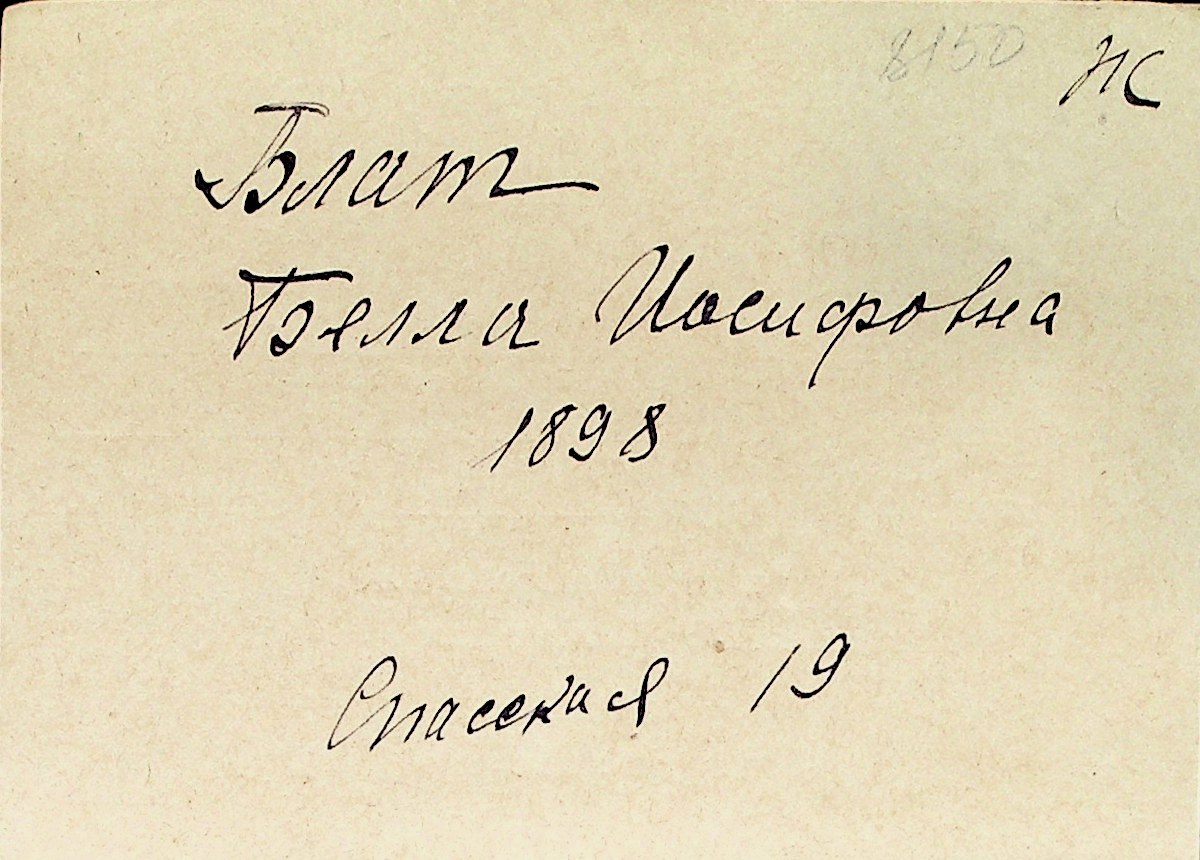 8150 Ж
Блат
Белла Иосифовна
1898
Спасская 19